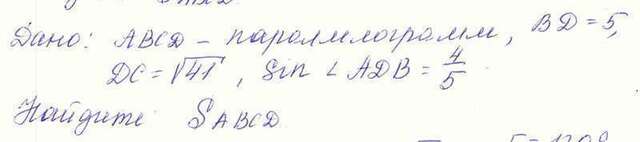 Дано: ABCD – параллелограмм, BD = 5,
DC = √41, Sin ∠ ADB = 4/5
Найдите S ABCD